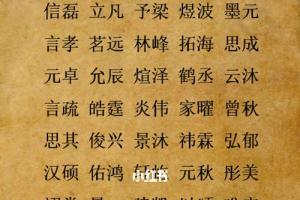 信磊 立凡 予梁 煜波 墨元
言孝 茗远 林峰 拓海 思成
元卓 允辰 煊泽 鹤丞 云沐
言疏 皓霆 炎伟 家曜 曾秋
思其 俊兴 景沐 祎霖 弘郁
汉硕 佑鸿 元秋 彤美
小红书